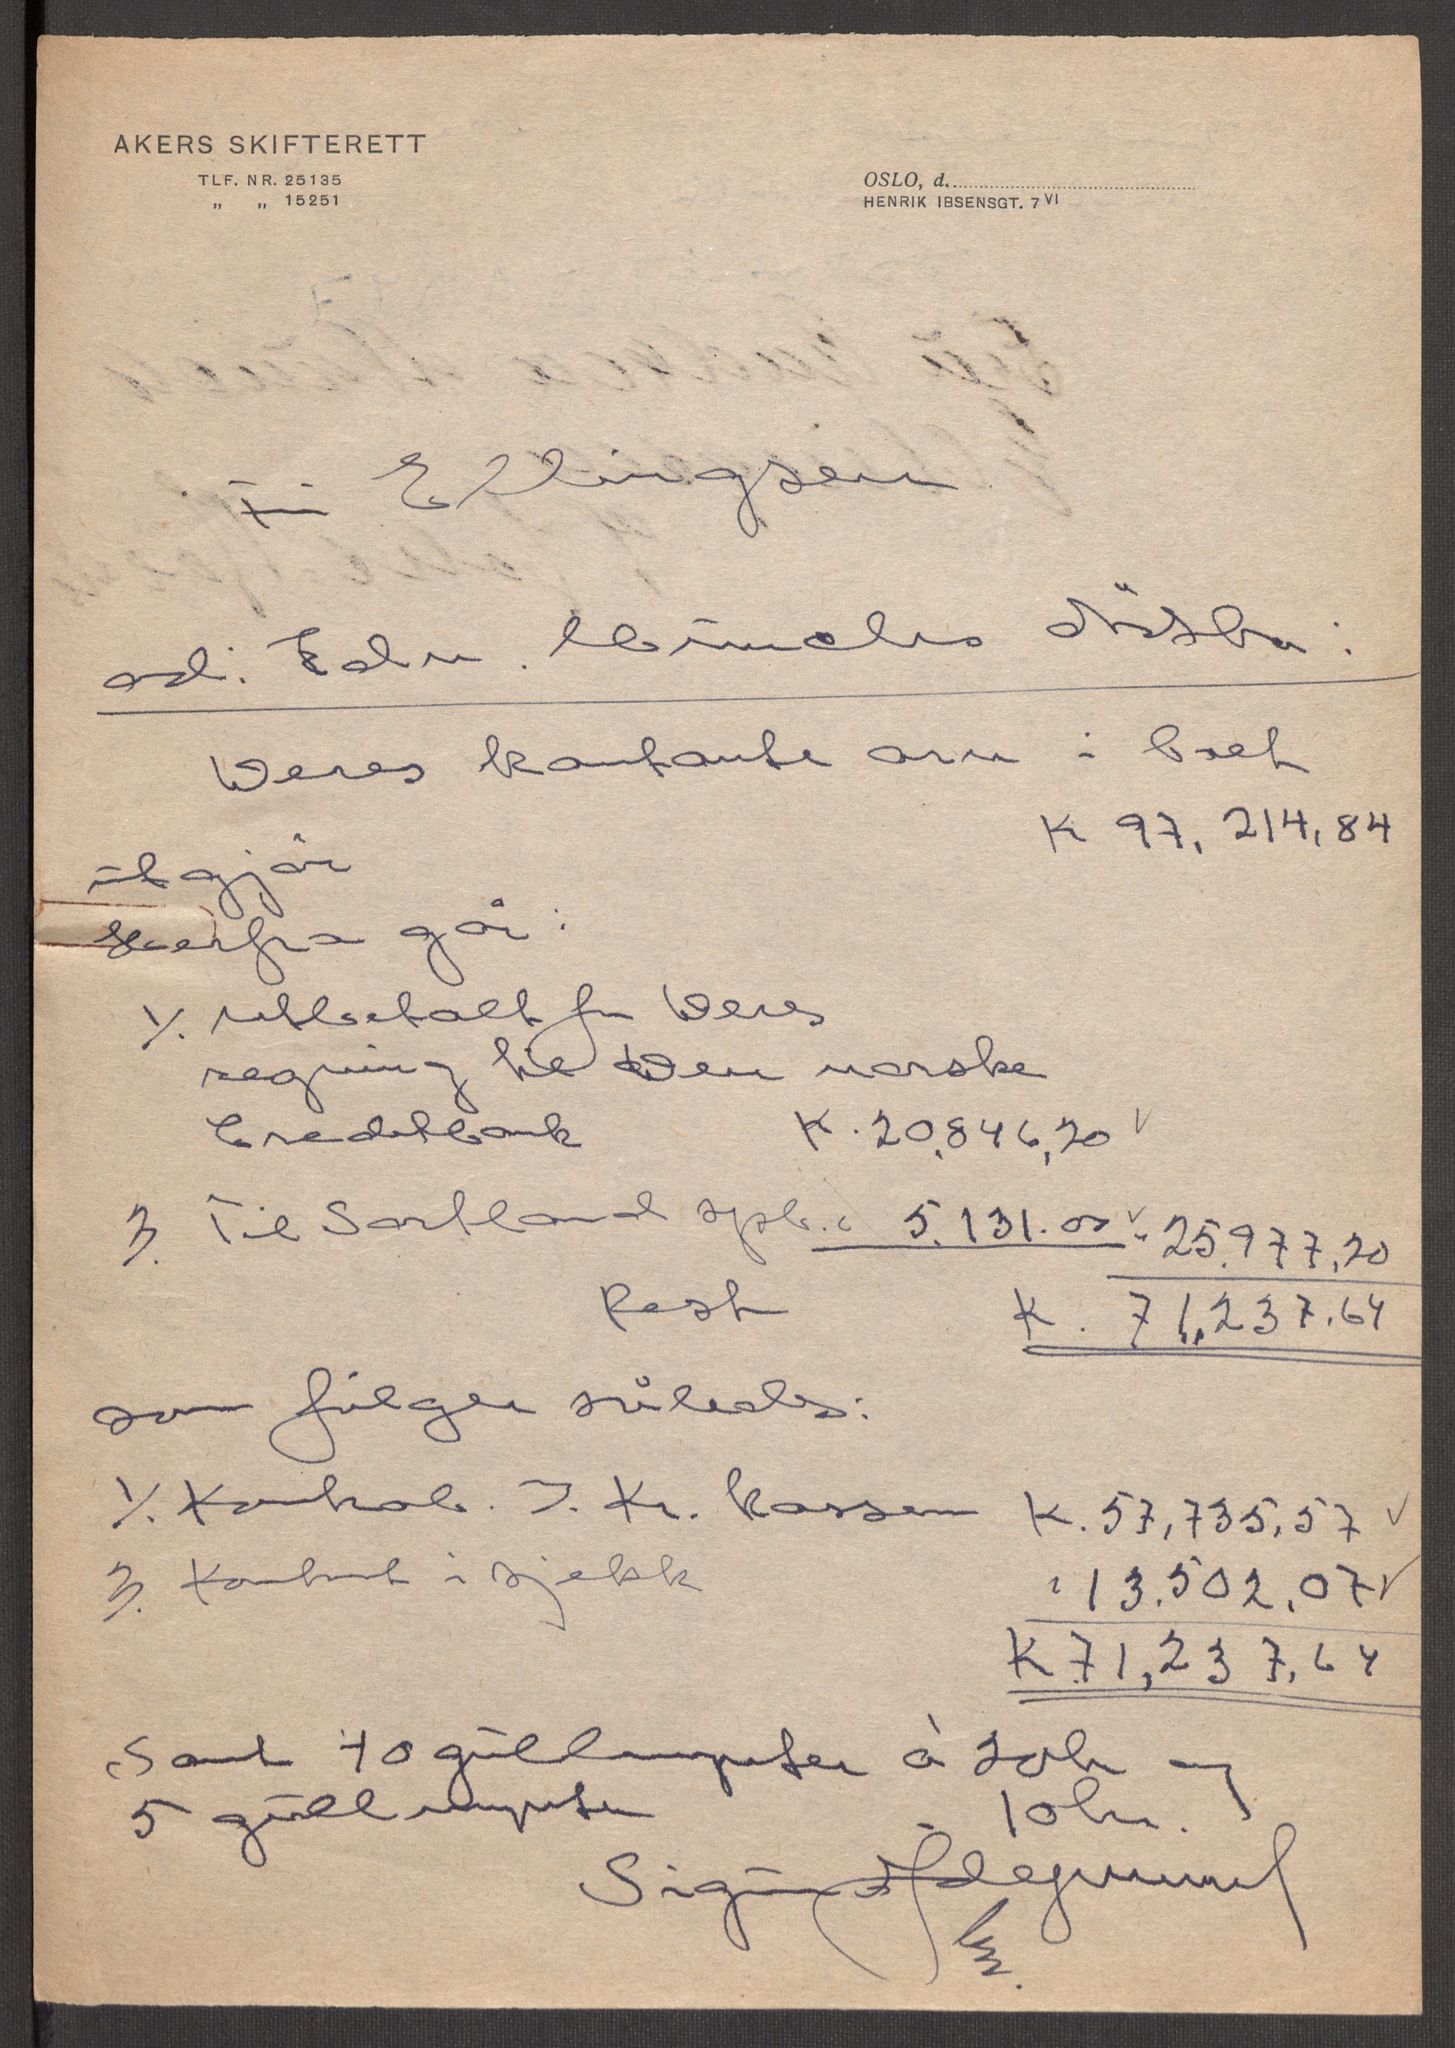 AKERS SKIFTERETT
TLF. NR. 25135
„ „ 15251
OSLO, d.
HENRIK IBSENSGT. 7 VI
Ellingsen
ad. Edv. Munchs dödsbo:
Deres kontante arv i boet
utgjör K 97,214,84
Herfra går:
1/. utbetalt for Deres
regning til Den norske
Creditbank K. 20,846,20
2/. Til Sortland spb. " 5.131.00 " 25.977,20
Rest K. 71,237.64
som fölger således:
1/. Kontrab. I. Kr. kassen K. 57,735,57
2/. Kontant i sjekk " 13.502,07
K 71,237,64
Samt 40 gullmynter à 20 kr og
5 gullmynter - 10 kr.